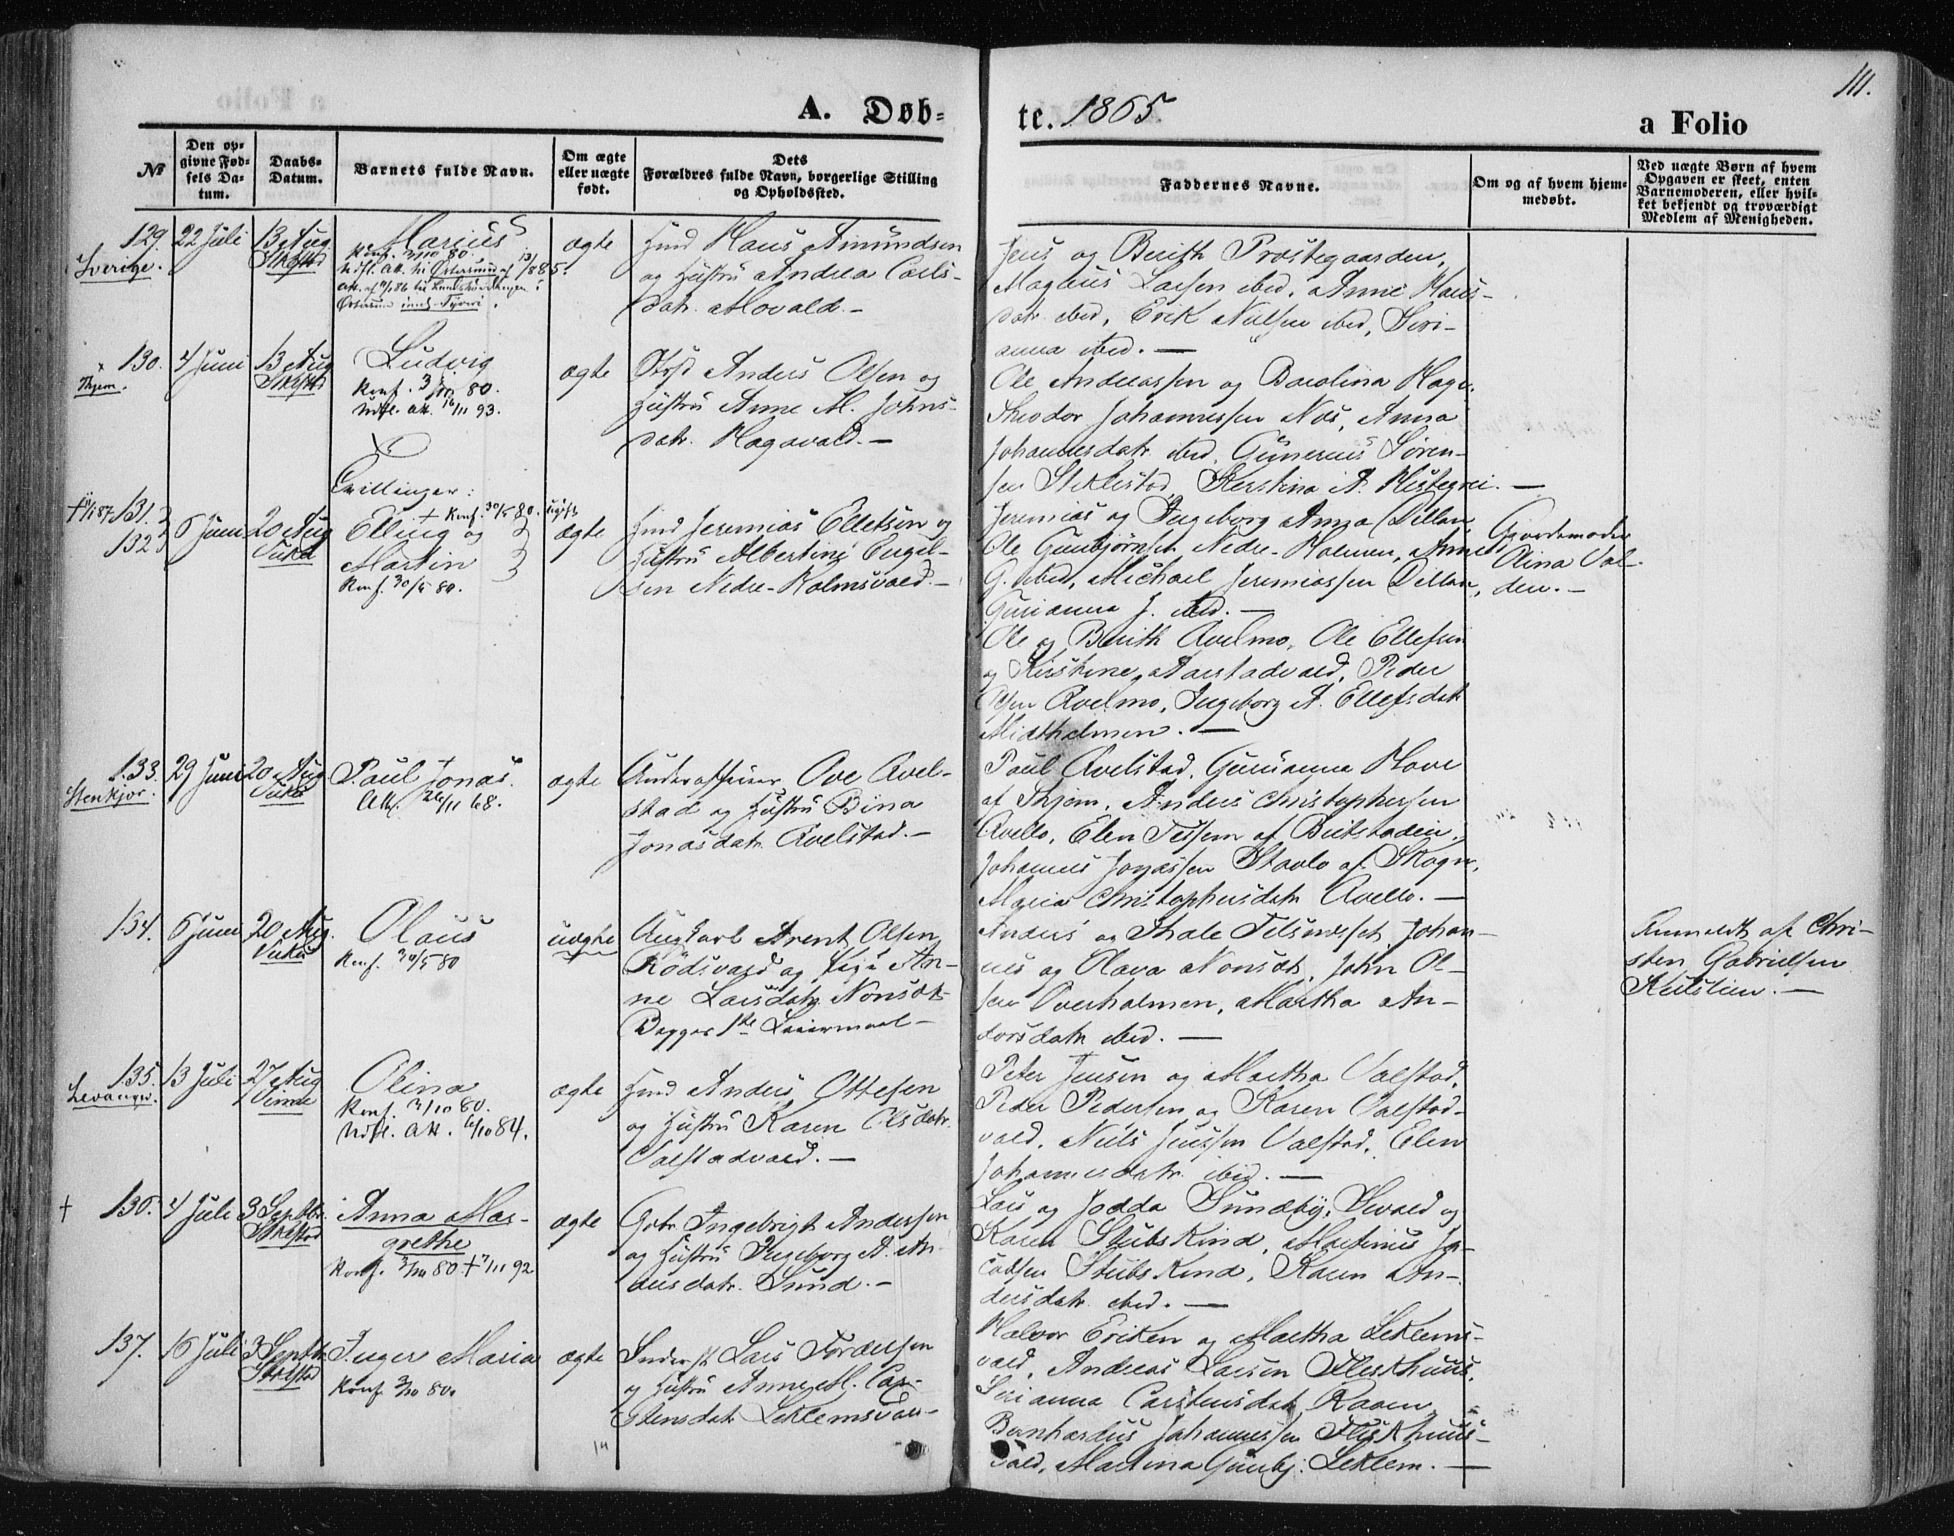 111.
A. Døb=
te. 1865.
a Folio
№
Den op=
givne Fød=
sels Da=
tum.
Daabs=
Datum.
Barnets fulde Navn.
Om ægte
eller uægte
født.
Dets
Forældres fulde Navn, borgerlige Stilling
og Opholdssted.
Faddernes Navne.
Om og af hvem hjem=
medøbt.
Ved uægte Børn af hvem
Opgaven er skeet, enten
Barnemoderen, eller hvil=
ket bekjendt og troværdigt
Medlem af Menigheden.
129.
Sverige.
22 Juli
13 Aug
Marius
Konf. 3/10 80.
ægte
Hmd Hans Amundsen
og Hustru Andrea Carls-
datr. Movald.-
Jens og Berith Prostegaarden,
Magnus Larsen ibid. Anne Hans-
datr. ibid, Erik Nielsen ibid, Seri-
anna ibid. -
130.
4 Juni
13 Aug
Ludvig
Konf. 3/10 80.
Udfl. att. 16/11 93.
ægte
Anders Olsen og
Hustru Anne M. Johns-
datr. Hagavald.-
Ole Andreassen og Barolina Haga.
Theodor Johannessen Nos, Anna
Johannesdatr ibid. Gunerius Søren-
sen Stiklestad,
131.
132
6 Juni
20 Aug
Vuku
Tvillinger:
Elling og
Martin
Konf. 30/5 80.
ægte
Hmd Jeremias Ellefsen og
Hustru Albertine Engel-
sen Nedre-Holmsvald.-
Jeremias og Ingeborg Anna Dillan,
Ole Gunbjørnsen Nedre-Holmen, Anne
G. ibid, Michael Jeremiassen Dillan,
Gurianna J. ibid. -
Ole og Berith Avelmo, Ole Ellefsen
og Kirstine Aarstadvald, Peder
Olsen Avelmo, Ingeborg A. Ellefsdatr
Midtholmen. -
Gjordemoder
Olina Val-
den. -
133.
Stenkjær.
29 Juni
20 Aug
Vuku
Paul Jonas.
Att. 26/11 68.
ægte
Underofficer Ove Avel-
stad og Hustru Bina
Jonasdatr. Avelstad. -
Paul Avelstad, Gurianna Hove
af Thjem, Anders Christophersen
Avello, Elen Tessem af Beitstaden,
Johannes Jonassen Stavlo af Skogn,
Maria Christophersdatr Avello. -
134.
6 Juni
20 Aug.
Vuku
Olaus
Konf. 30/5 80
uægte
Ungkarl Arent Olsen
Rödsvald og Pige An-
ne Larsdatr Nonsæt-
Begges 1ste Leiermaal-
Anders og Johan-
nes og Olava Nonsæt, John Ol-
sen Overholmen, Martha An-
dersdatr ibid. -
Anmeldt af Chri-
sten Gabrielsen
135.
Levanger.
13 Juli
27 Aug
Vinne
Olina
Konf. 3/10 80.
Udfl. att. 6/10 84.
ægte
Hmd Anders Ottesen
og Hustru Karen Olsdatr.
Valstadvald. -
Peter Jensen og Martha Valstad,
Peder Pedersen og Karen Valstad-
vald, Niels Jensen Valstad, Elen
Johannesdatr ibid. -
†
136.
4 Juli
3 Septbr.
Anna Mar-
grethe
Konf. 3/10 80 † 7/11 92
ægte
Gbr. Ingebrigt Andersen
og Hustru Ingeborg A. An-
dersdatr. Sund. -
Lars og Jodda Sundby, Sivald og
Karen Stubskind, Martinus Ja-
cobsen Stubskind, Karen An-
dersdatr. ibid. -
137.
16 Juli
3 Septbr
Inger Maria
Konf. 3/10 80.
ægte
Lars Tordersen
og Hustru Anne M. Car-
stensdatr. Leklemsvald-
Halvor Eriken og Martha Leklems-
vald, Andreas Larsen Fleskhuus,
Serianna Carstensdatr Raaen,
Bernhardus Johannessen Fleskhuus-
vald, Martina Gunbj: Leklem. -